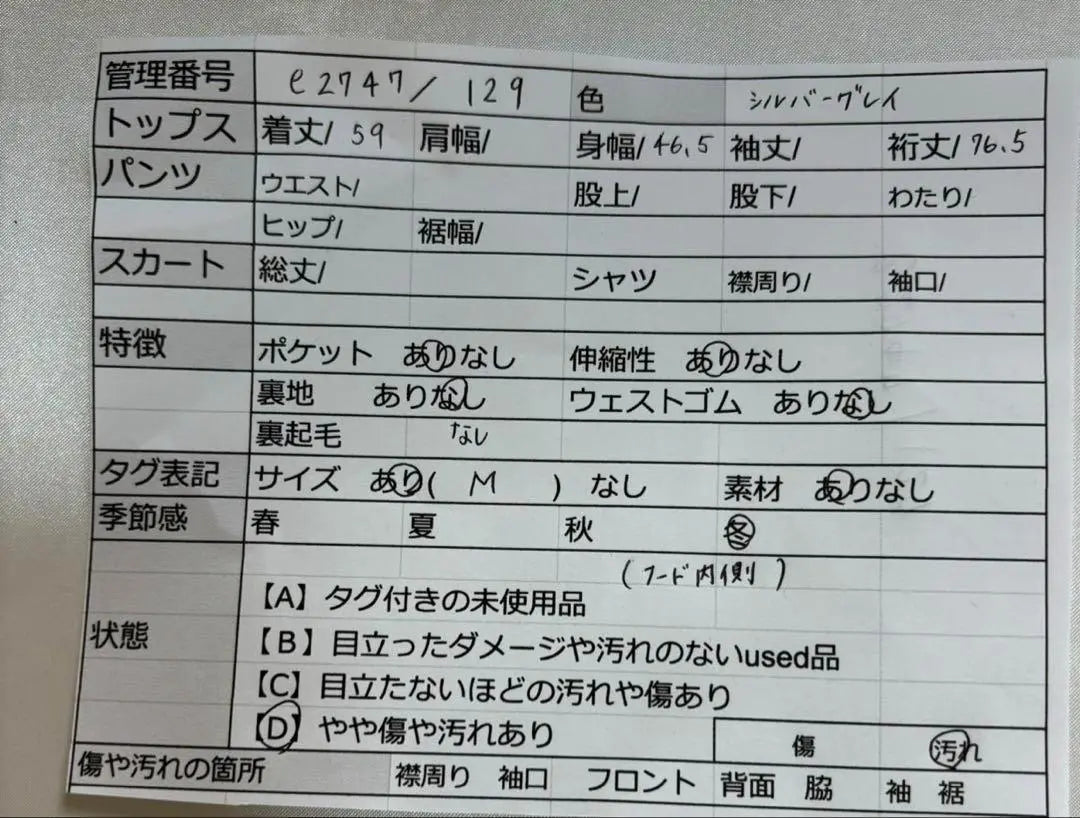 管理番号 e2747/ 129 色 シルバーグレイ
トップス 着丈/ 59 肩幅/ 身幅/ 46.5 袖丈/ 裄丈/ 76.5
パンツ ウエスト/ 股上/ 股下/ わたり/
ヒップ/ 裾幅/
スカート 総丈/ シャツ 襟周り/ 袖口/
特徴 ポケット ありなし 伸縮性 ありなし
裏地 ありなし ウェストゴム ありなし
裏起毛 なし
タグ表記 サイズ あり( M ) なし 素材 ありなし
季節感 春 夏 秋 冬
(フード内側)
【A】タグ付きの未使用品
状態 【B】目立ったダメージや汚れのないused品
【C】目立たないほどの汚れや傷あり
【D】やや傷や汚れあり 傷 汚れ
傷や汚れの箇所 襟周り 袖口 フロント 背面 脇 袖 裾